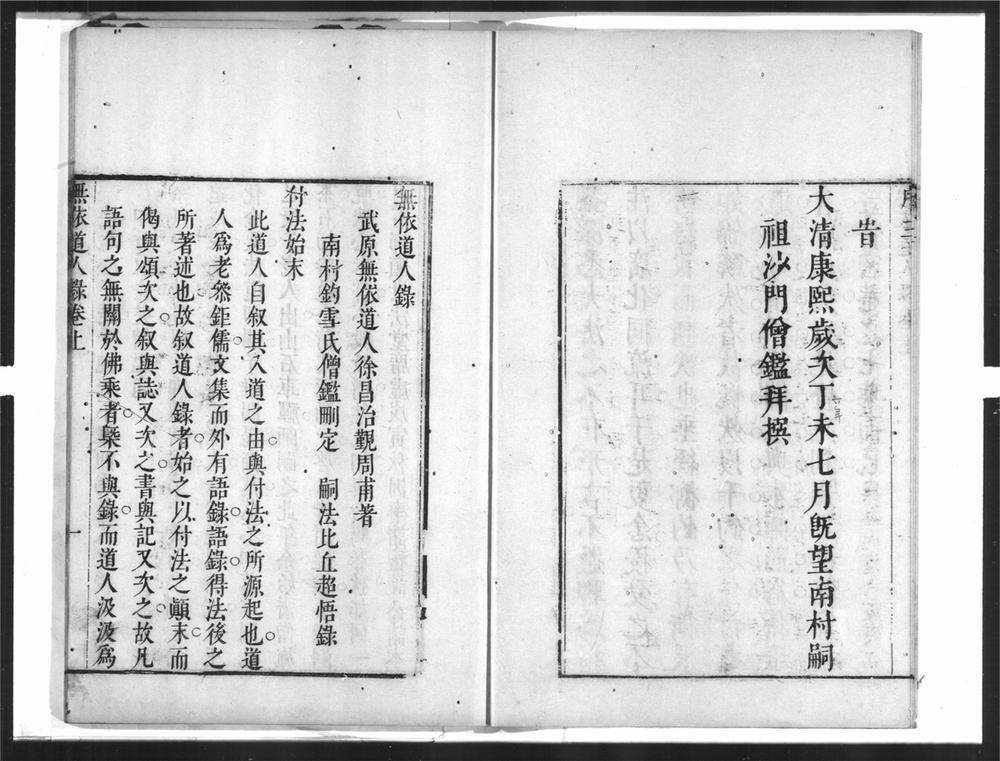 旹
大清康熙歲次丁未七月旣望南村嗣
祖沙門僧鑑拜撰
無依道人錄
武原無依道人徐昌治覲周甫著
南村釣雪氏僧鑑刪定　嗣法比丘超悟錄
付法始末
此道人自叙其入道之由。與付法之所源起也。道
人爲老叅鉅儒。文集而外有語錄。語錄得法後之
所著述也。故叙道人錄者。始之以付法之顚末。而
偈與頌次之。叙與誌又次之。書與記又次之。故凡
語句之無關於佛乘者。槩不與錄。而道人汲汲爲
無依道人錄卷上　一